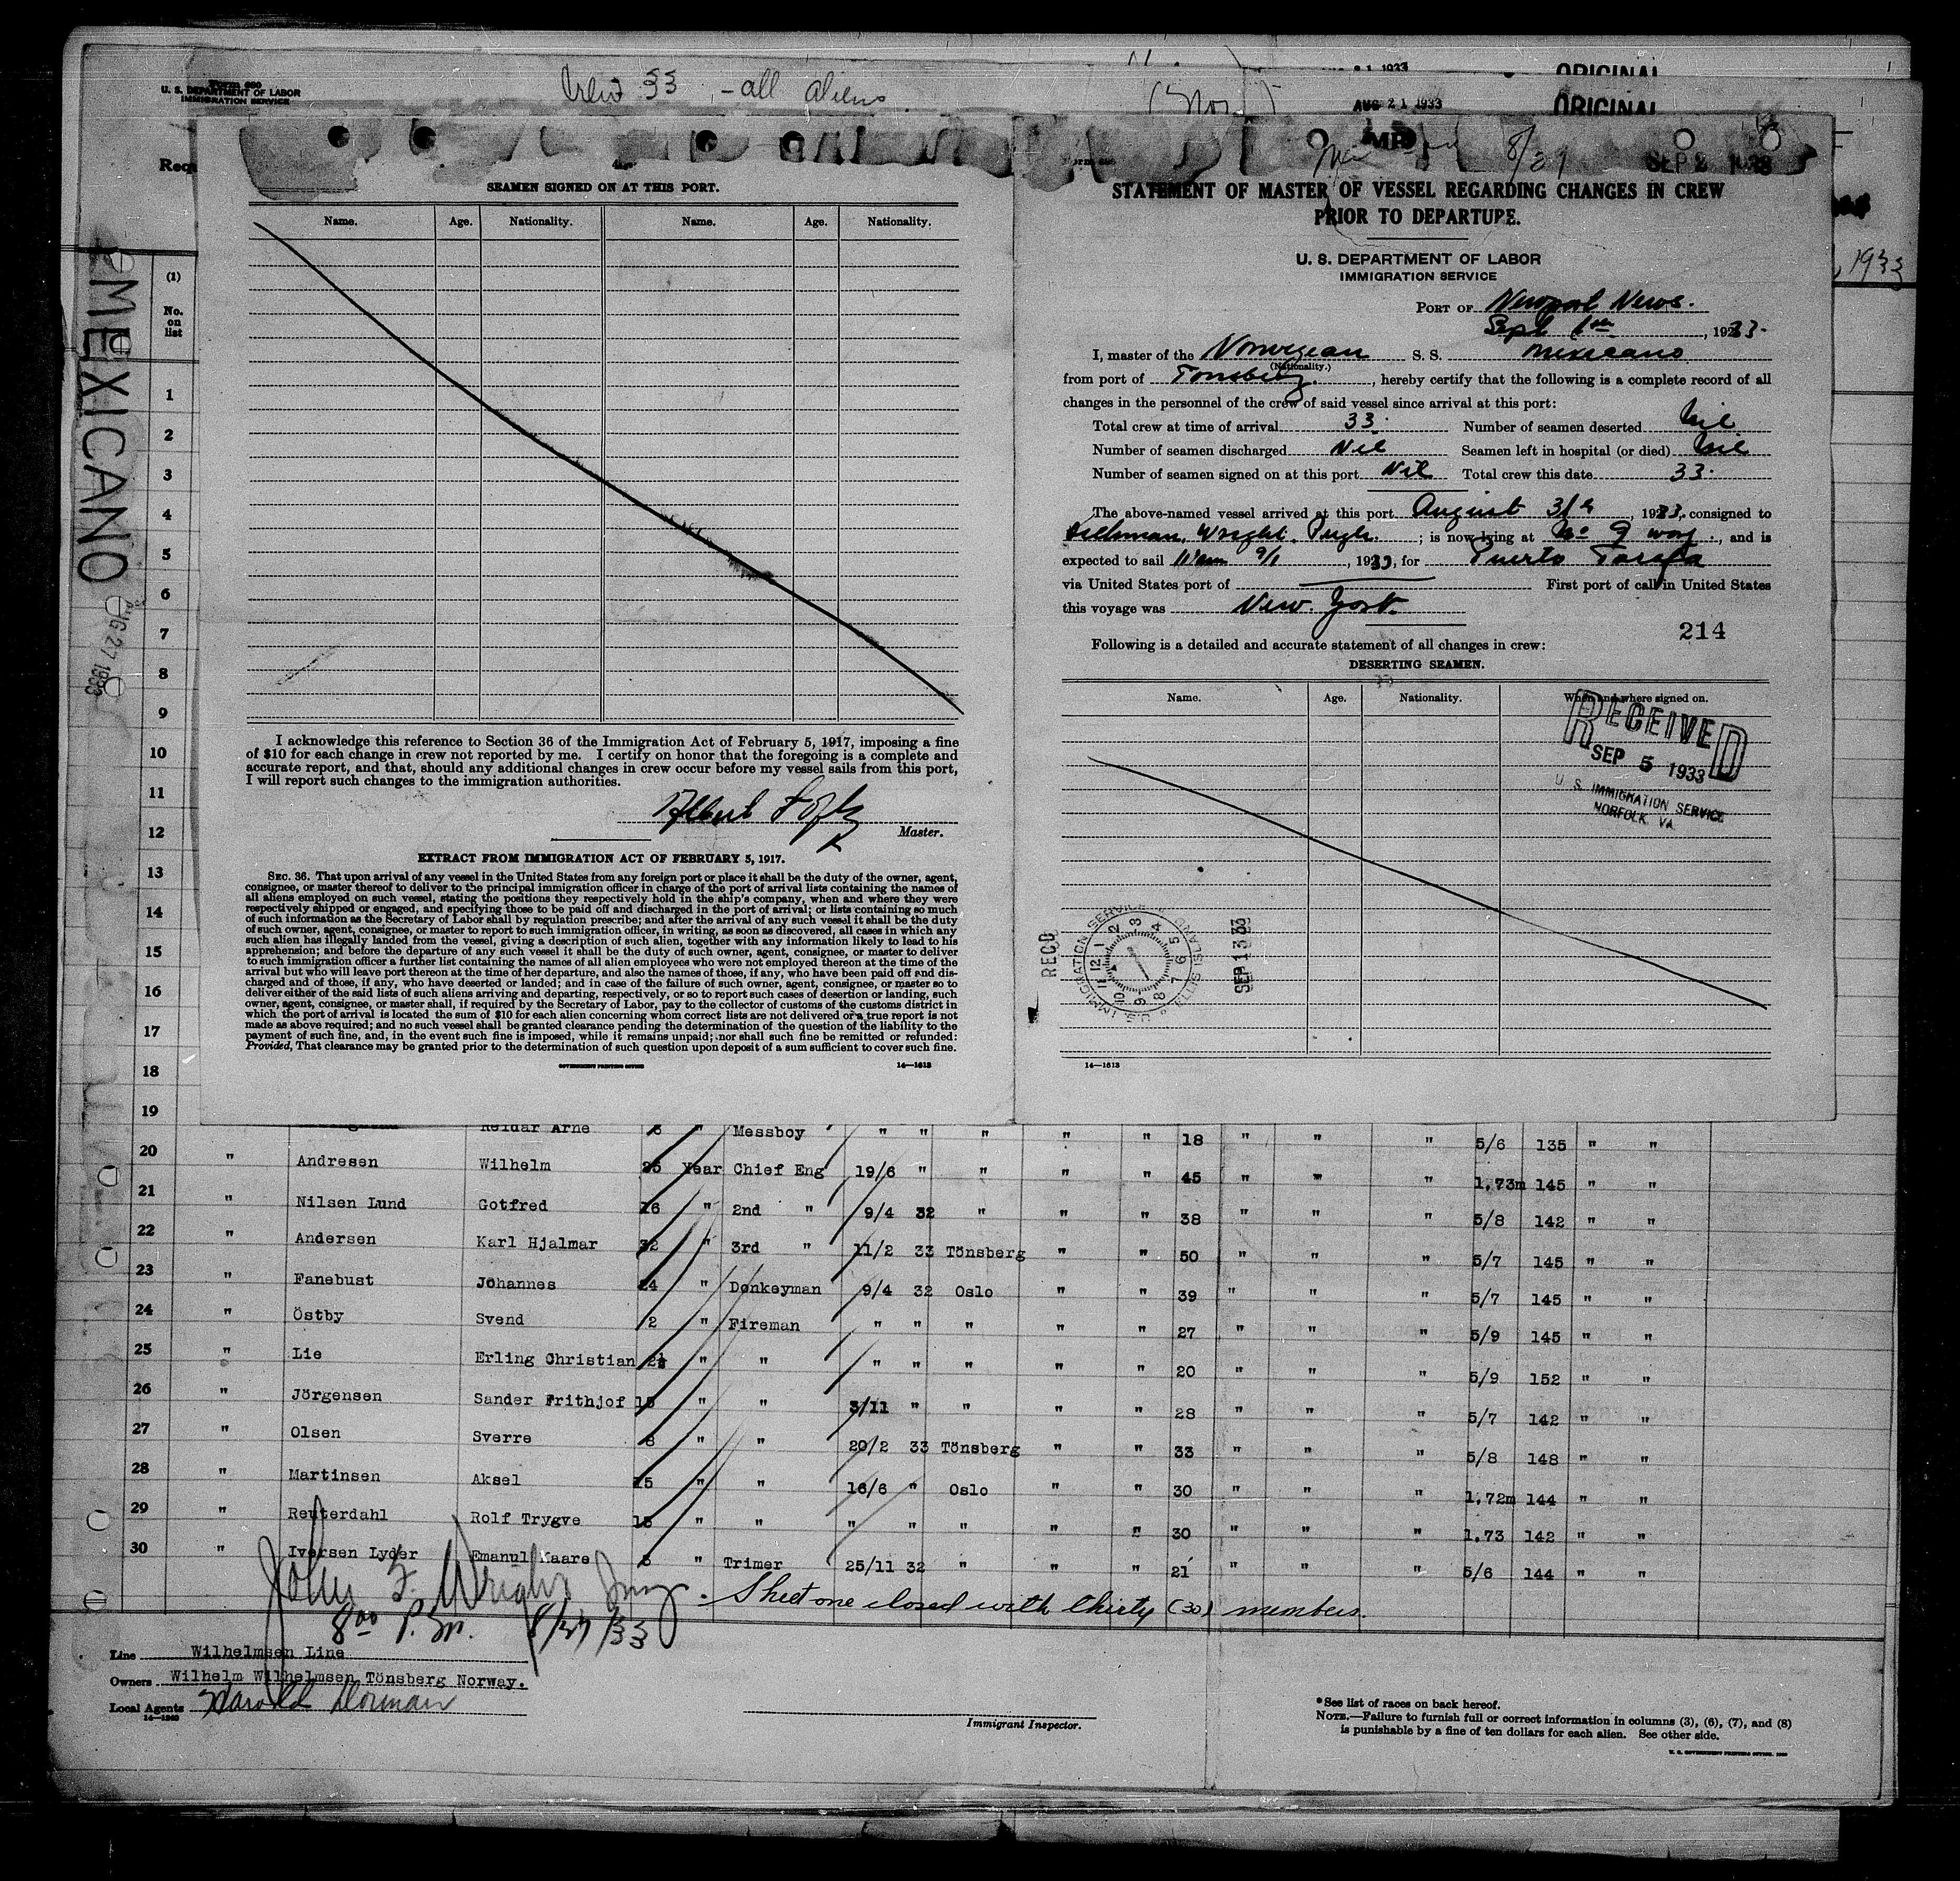 Form 680
U. S. DEPARTMENT OF LABOR
IMMIGRATION SERVICE
Crew 33 - all aliens
(Nor.)
1 1933
ORIGINAL
AUG 21 1933
ORIGINAL
8/31
SEP 2 1933
1933
MEXICANO
AUG 27 1933
(1)
No.
on
list
1
2
3
4
5
6
7
8
9
10
11
12
13
14
15
16
17
18
19
SEAMEN SIGNED ON AT THIS PORT.
Name. Age. Nationality. Name. Age. Nationality.
I acknowledge this reference to Section 36 of the Immigration Act of February 5, 1917, imposing a fine
of $10 for each change in crew not reported by me. I certify on honor that the foregoing is a complete and
accurate report, and that, should any additional changes in crew occur before my vessel sails from this port,
I will report such changes to the immigration authorities.
Albert
Master.
EXTRACT FROM IMMIGRATION ACT OF FEBRUARY 5, 1917.
SEC. 36. That upon arrival of any vessel in the United States from any foreign port or place it shall be the duty of the owner, agent,
consignee, or master thereof to deliver to the principal immigration officer in charge of the port of arrival lists containing the names of
all aliens employed on such vessel, stating the positions they respectively hold in the ship's company, when and where they were
respectively shipped or engaged, and specifying those to be paid off and discharged in the port of arrival; or lists containing so much
of such information as the Secretary of Labor shall by regulation prescribe; and after the arrival of any such vessel it shall be the duty
of such owner, agent, consignee, or master to report to such immigration officer, in writing, as soon as discovered, all cases in which any
such alien has illegally landed from the vessel, giving a description of such alien, together with any information likely to lead to his
apprehension; and before the departure of any such vessel it shall be the duty of such owner, agent, consignee, or master to deliver
to such immigration officer a further list containing the names of all alien employees who were not employed thereon at the time of the
arrival but who will leave port thereon at the time of her departure, and also the names of those, if any, who have been paid off and dis-
charged and of those, if any, who have deserted or landed; and in case of the failure of such owner, agent, consignee, or master so to
deliver either of the said lists of such aliens arriving and departing, respectively, or so to report such cases of desertion or landing, such
owner, agent, consignee, or master shall, if required by the Secretary of Labor, pay to the collector of customs of the customs district in
which the port of arrival is located the sum of $10 for each alien concerning whom correct lists are not delivered or a true report is not
made as above required; and no such vessel shall be granted clearance pending the determination of the question of the liability to the
payment of such fine, and, in the event such fine is imposed, while it remains unpaid; nor shall such fine be remitted or refunded:
Provided, That clearance may be granted prior to the determination of such question upon deposit of a sum sufficient to cover such fine.
GOVERNMENT PRINTING OFFICE 14—1613
STATEMENT OF MASTER OF VESSEL REGARDING CHANGES IN CREW
PRIOR TO DEPARTURE.
U. S. DEPARTMENT OF LABOR
IMMIGRATION SERVICE
PORT OF Newport News.
Sept 1st, 1933.
I, master of the Norwegian S. S. Mexicano
(Nationality.)
from port of Tonsberg., hereby certify that the following is a complete record of all
changes in the personnel of the crew of said vessel since arrival at this port:
Total crew at time of arrival 33. Number of seamen deserted Nil
Number of seamen discharged Nil Seamen left in hospital (or died) Nil
Number of seamen signed on at this port Nil Total crew this date 33.
The above-named vessel arrived at this port August 31st, 1933, consigned to
Wright. Pugh.; is now lying at No 9 way, and is
expected to sail 11 am 9/1, 1933, for Puerto Tarafa
via United States port of First port of call in United States
this voyage was New York.
214
Following is a detailed and accurate statement of all changes in crew:
DESERTING SEAMEN.
Name. Age. Nationality. When and where signed on.
RECEIVED
SEP 5 1933
U. S. IMMIGRATION SERVICE
NORFOLK VA
RECD
U. S. IMMIGRATION SERVICE ELLIS ISLAND
12 1 2 3 4 5 6 7 8 9 10 11
SEP 13 33
14—1613
Reidar Arne 6 " Messboy " " " " " 18 " " " 5/6 135 " "
20 " Andresen Wilhelm 25 Year Chief Eng 19/6 " " " " 45 " " " 1,73m 145 " "
21 " Nilsen Lund Gotfred 16 " 2nd " 9/4 32 " " " 38 " " " 5/8 142 " "
22 " Andersen Karl Hjalmar 32 " 3rd " 11/2 33 Tönsberg " " 50 " " " 5/7 145 " "
23 " Fanebust Johannes 24 " Donkeyman 9/4 32 Oslo " " 39 " " " 5/7 145 " "
24 " Östby Svend 2 " Fireman " " " " " 27 " " " 5/9 145 " "
25 " Lie Erling Christian 2½ " " " " " " " 20 " " " 5/9 152 " "
26 " Jörgensen Sander Frithjof 15 " " 3/11 " " " " 28 " " " 5/7 142 " "
27 " Olsen Sverre 8 " " 20/2 33 Tönsberg " " 33 " " " 5/8 148 " "
28 " Martinsen Aksel 15 " " 16/6 " Oslo " " 30 " " " 1,72m 144 " "
29 " Reuterdahl Rolf Trygve 15 " " " " " " " 30 " " " 1.73 142 " "
30 " Iversen Lyder Emanul Kaare 5 " Trimer 25/11 32 " " " 21 " " " 5/6 144 " "
John F. Wright
- Sheet one closed with thirty (30) members.
8 00 P.M. 8/27/33
Line Wilhelmsen Line
Owners Wilhelm Wilhelmsen Tönsberg Norway.
Local Agents Harold Dorman
14—1240
Immigrant Inspector.
*See list of races on back hereof.
NOTE.—Failure to furnish full or correct information in columns (3), (6), (7), and (8)
is punishable by a fine of ten dollars for each alien. See other side.
U. S. GOVERNMENT PRINTING OFFICE